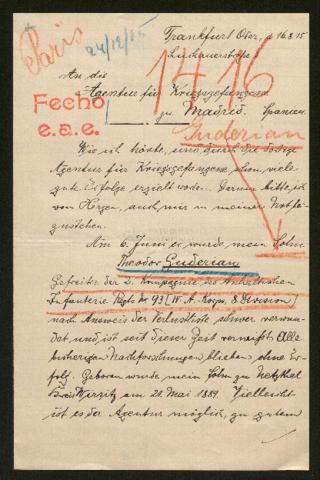 Frankfurt Oder, d. 16.8.15
Paris
24/12/15
Luckauerstr. 
An die
1416
Agentur für Kriegsgefangene
Fecho
e.a.e.
zu Madrid. Spanien.
Guderian
Wie ich hörte, sind durch die dortige
Agentur für Kriegsgefangene schon viele
gute Erfolge erzielt worden. Darum bitte ich
von Herzen, auch mir in meiner Not bei-
zustehen.
Am 6. Juni er. wurde mein Sohn
Theodor Guderian
Gefreiter der 2. Kompagnie des Anhaltischen
Infanterie Regts. No 93 (IV A. Korps, 8 Division)
nach Ausweis der Verlustliste schwer verwun-
det und ist seit dieser Zeit vermißt. Alle
bisherigen Nachforschungen blieben ohne Er-
folg. Geboren wurde mein Sohn zu Netzthal
Kreis Wirsitz am 28. Mai 1889. Vielleicht
ist es der Agentur möglich, zu gutem